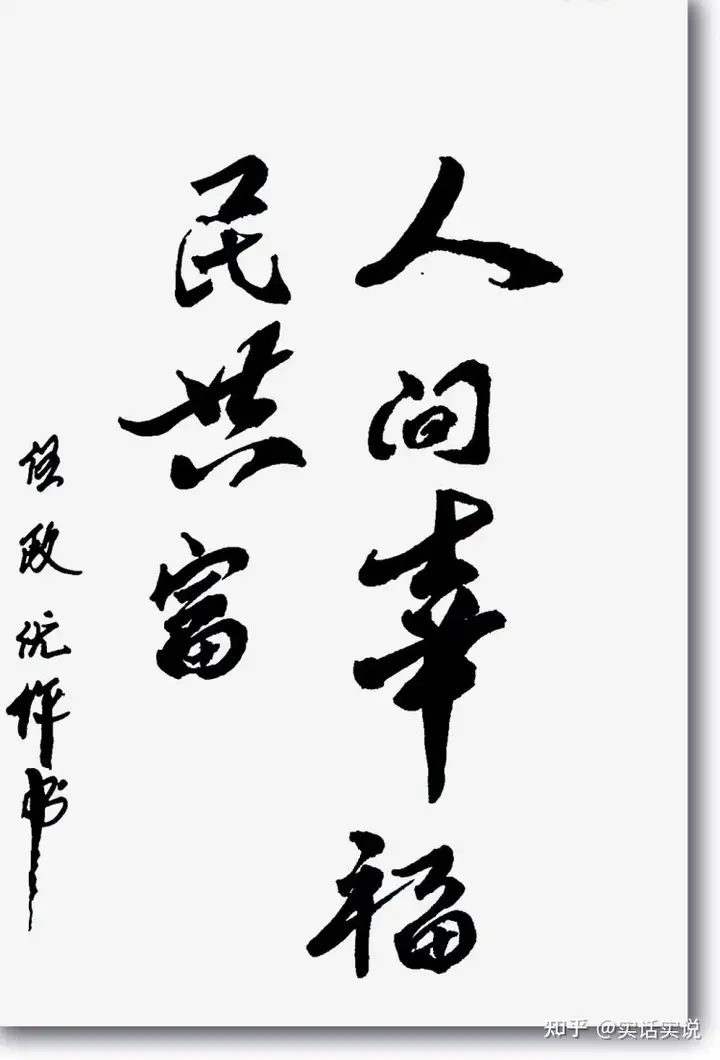 人间幸福
民共富
任政优作书
知乎 @实话实说